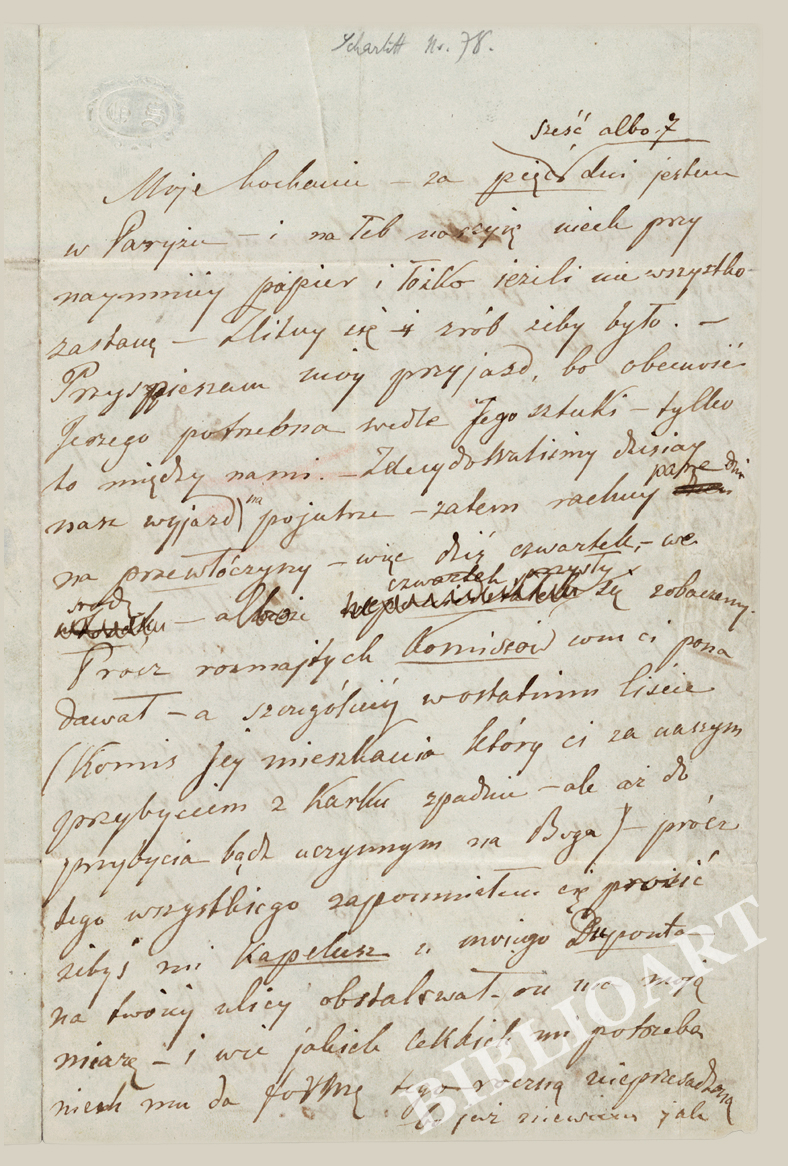 Scharlitt Nr. 78.
sześć albo 7
Moje Kochanie – za pięć dni jestem
w Paryżu – i na łeb na szyję niech przy
naymniey papier i łóżko jeżeli nie wszystko
zastanę – Zlituy się i zrób żeby było. –
Przyspieszam móy przyjazd, bo obecność
Jerzego potrzebna wedle Jego sztuki – tylko
to między nami. – Zdecydowaliśmy dzisiay
nasz wyjazd na pojutrze – zatem rachuy parę dni
na przewłóczyny – więc dziś czwartek, – we
środę – albo czwartek przyszły się zobaczemy.
Procz rozmajtych Komissów com ci pona
dawał – a szczególniey w ostatnim liście
(Komis Jey mieszkania który ci za naszym
przybyciem z Karku spadnie – ale aż do
przybycia bądź uczynnym na Boga) – prócz
tego wszystkiego zapomniałem cię prosić
żebyś mi Kapelusz u mojego Duponta
na twóiey ulicy obstalował – on ma moją
miarę – i wie jakich lekkich mi potrzeba
niech mu da formę tego roczną nieprzesadzoną
bo już niewiem jak
BIBLIOART